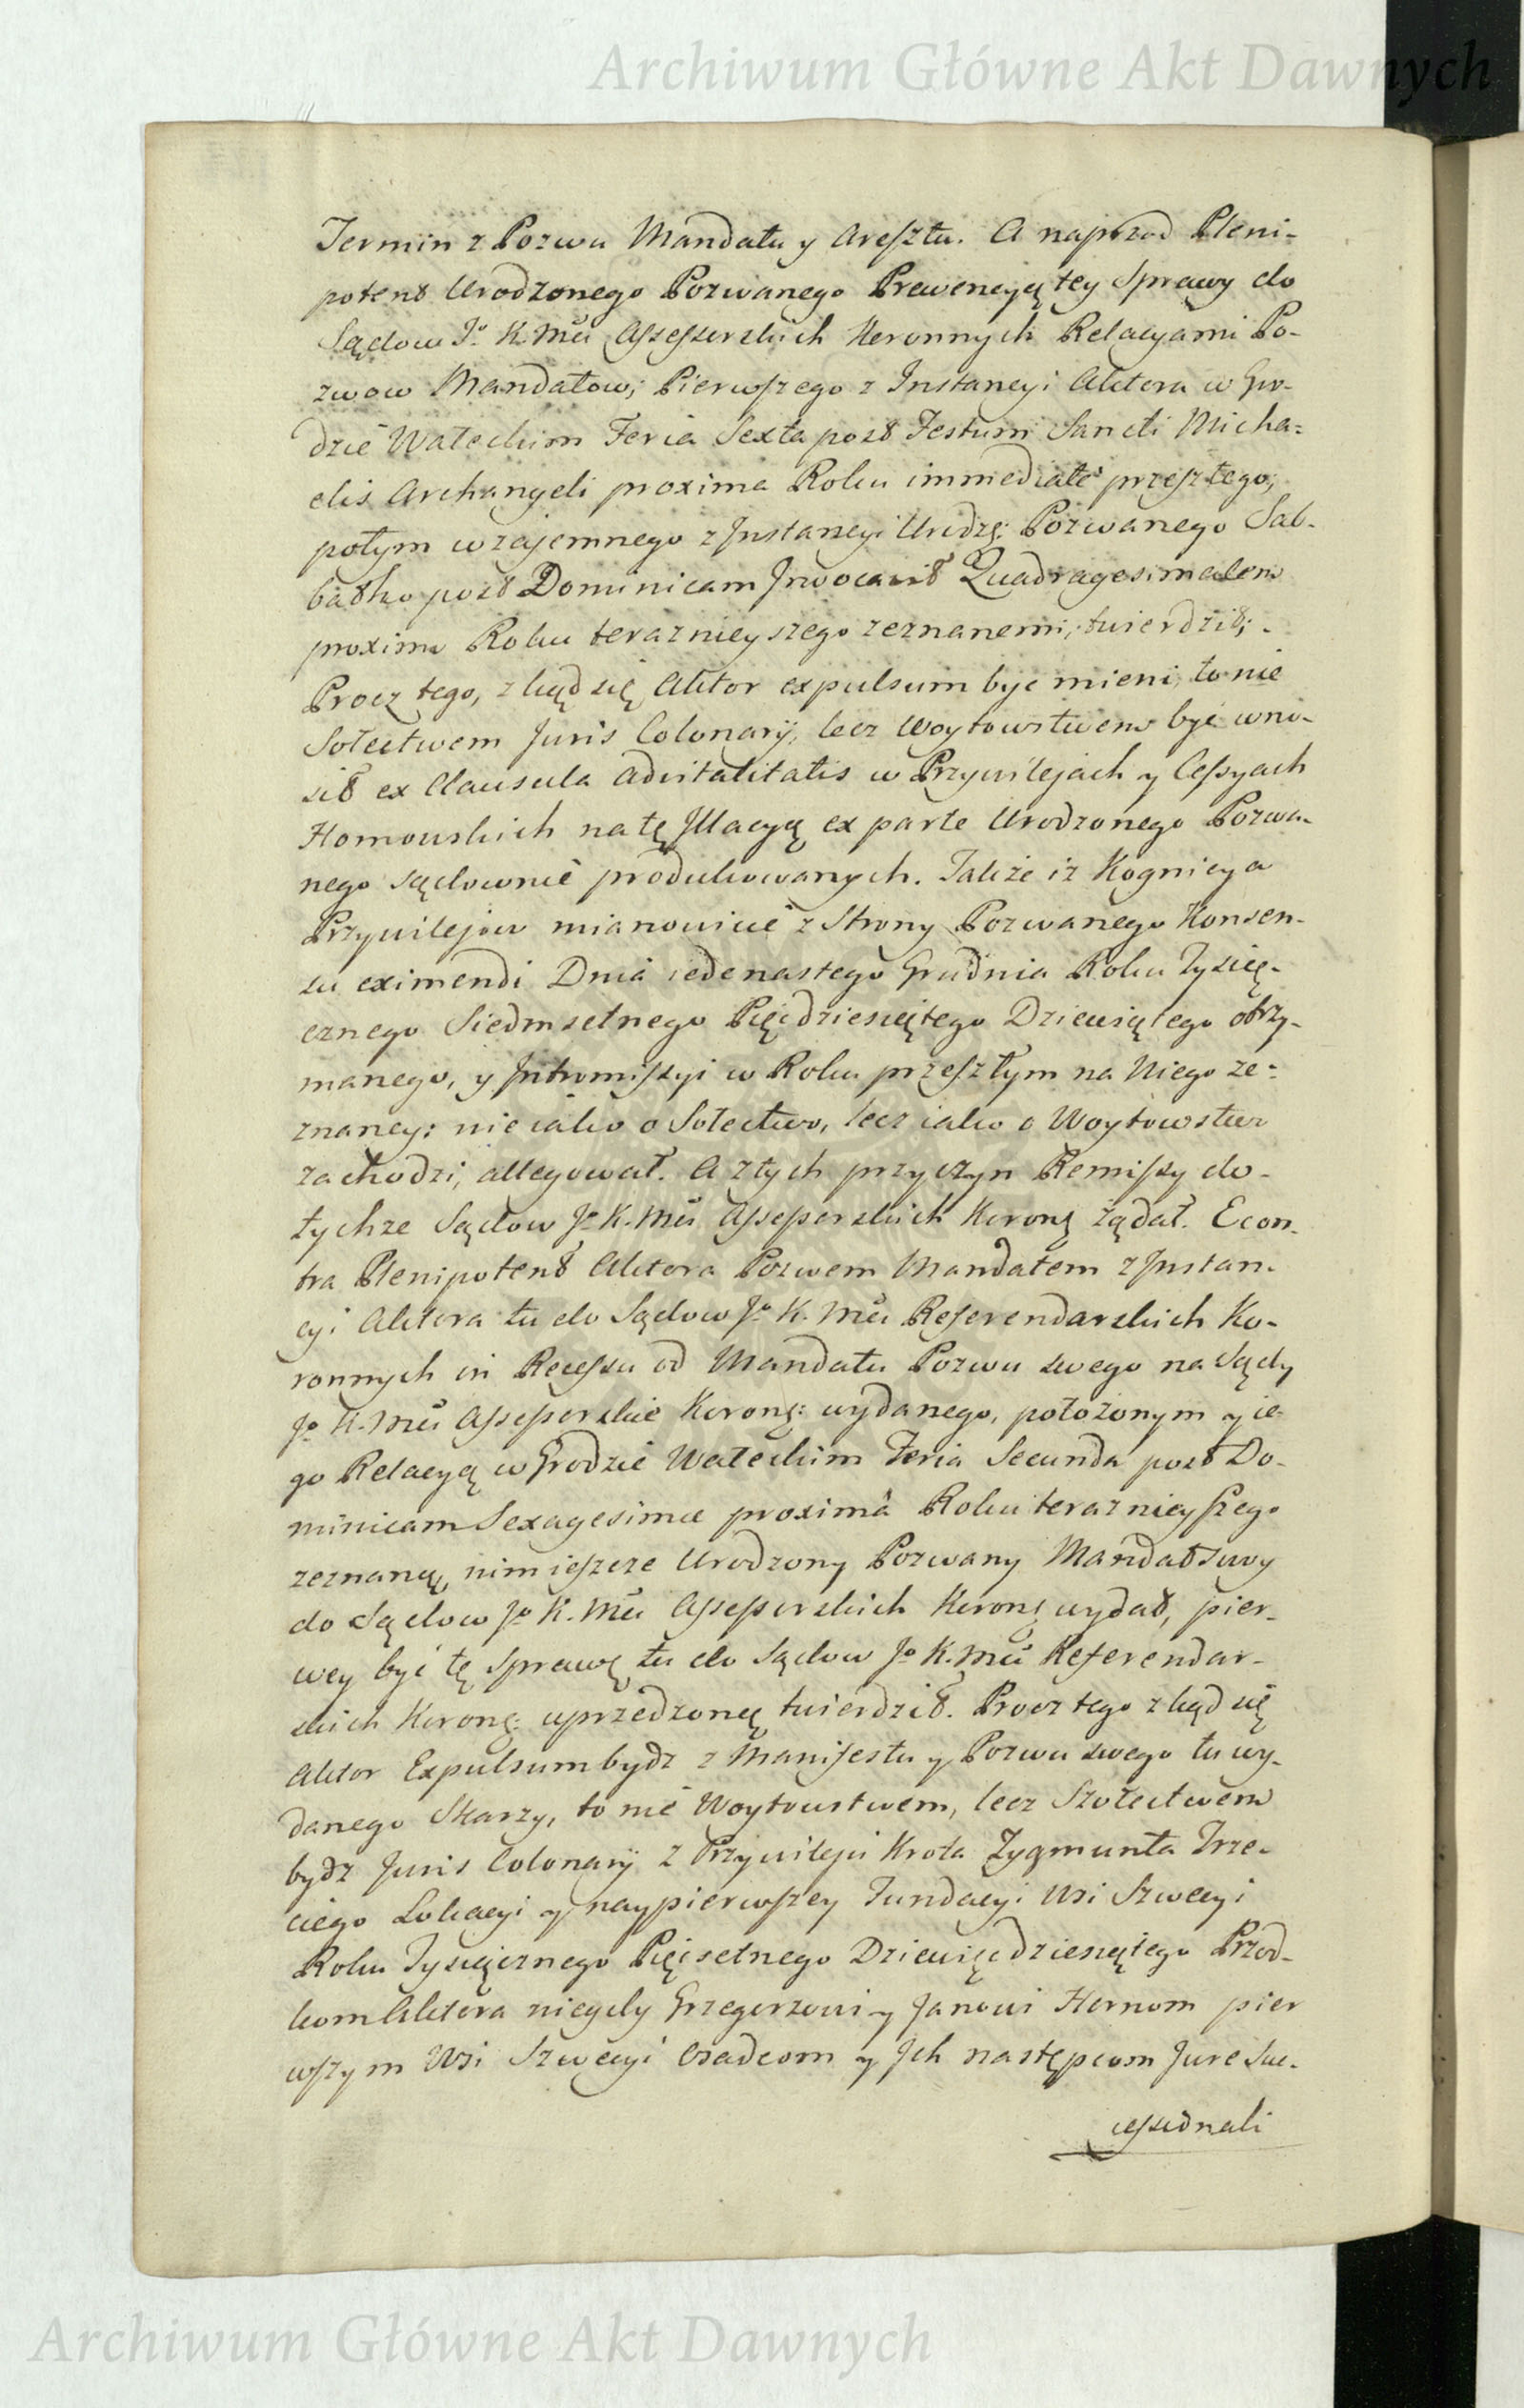 Archiwum Główne Akt Dawnych
Termin z Pozwu Mandatu y Aresztu. A naprzod Pleni-
potent Urodzonego Pozwanego Prewencyą tey Sprawy do
Sądow Jo K. Mci Assessorskich Koronnych Relacyami Po-
zwow Mandatow; Pierwszego z Instancyi Aktora w Gro-
dzie Wałeckim Feria Sexta post Festum Sancti Micha-
elis Archangeli proxima Roku immediate przeszłego;
potym wzajemnego z Instancyi Urodzę: Pozwanego Sab-
batho post Dominicam Invocavit Quadragesimalem
proximo Roku teraznieyszego zeznanemi, twierdził;
Procz tego, zkąd się Aktor expulsum byc mieni, to nie
Sołectwem Juris Colonarÿ, lecz Woytowstwem być wno-
sił ex Clausula advitalitatis w Przywilejach y Cessyach
Homowskich na tę Jllacyą ex parte Urodzonego Pozwa-
nego sądownie produkowanych. Także iż Kognicya
Przywilejow mianowicie z Strony Pozwanego Konsen-
su eximendi Dnia iedenastego Grudnia Roku Tysią-
cznego Siedmsetnego Pięćdziesiątego Dziewiątego otrzy-
manego, y Intromissyi w Roku przeszłym na Niego ze-
znaney: nie iako o Sołectwo, lecz iako o Woytowstwo
zachodzi, allegował. A z tych przyczyn Remissy do
tychze Sądow Jo K. Mci Assessorskich Koronę żądał. Econ-
tra Plenipotent Aktora Pozwem Mandatem z Instan-
cyi Aktora tu do Sądow Jo K. Mci Referendarskich Ko-
ronnych in Recessu od Mandatu Pozwu swego na Sądy
Jo K. Mci Assessorskie Koronę: wydanego, położonym y ie-
go Relacyą w Grodzie Wałeckim Feria Secunda post Do-
minicam Sexagesimae proxima Roku teraznieyszego
zeznaną, nim ieszcze Urodzony Pozwany Mandat swoy
do Sądow Jo K. Mci Assessorskich Koronę wydał, pier-
wey być tę sprawę tu do Sądow Jo K. Mci Referendar-
skich Koronę: uprzedzoną twierdził. Procz tego zkąd się
Aktor Expulsum bydz z Manifestu y Pozwu swego tu wy-
danego Skarzy, to nie Woytowstwem, lecz Szołectwem
bydz Juris Colonarÿ z Przywileju Krola Zygmunta Trze-
ciego Lokacyi y naypierwszey Fundacyi Wsi Szwecyi
Roku Tysiącznego Pięćsetnego Dziewięćdziesiątego Przod-
kom Aktora niegdy Grzegorzowi y Janowi Hernom pier
wszym Wsi Szwecyi Osadcom y Jch następcom Jure Suc-
cessionali
Archiwum Główne Akt Dawnych